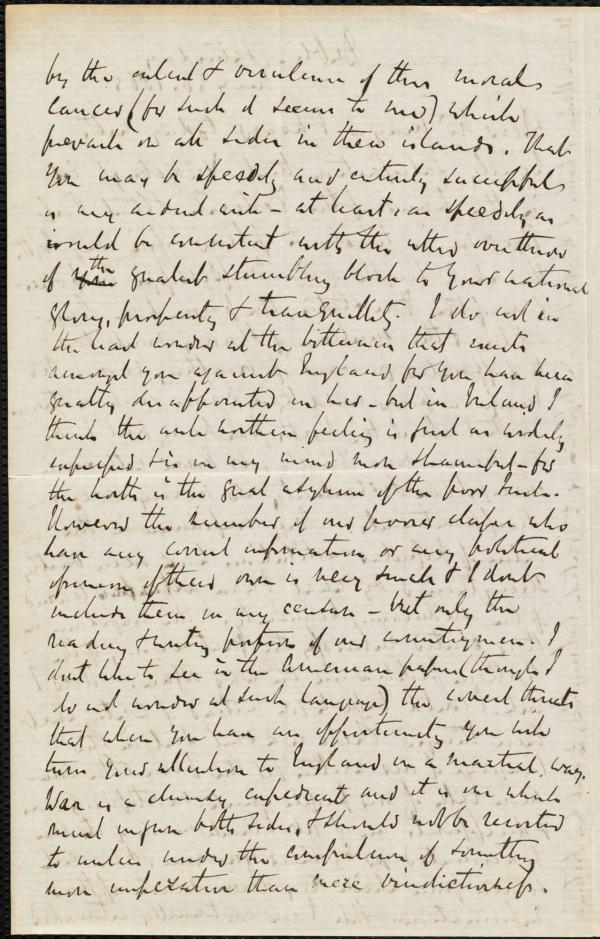 by the extent & virulence of this moral
cancer (for such it seems to me) which
prevails on all sides in these islands. That
you may be speedily and entirely successful
is my ardent wish - at least, as speedily as
would be consistent with the utter overthrow
of the greatest stumbling block to your national
glory, prosperity & tranquillity. I do not in
the least wonder at the bitterness that exists
amongst you against England for you have been
greatly disappointed in her - but in Ireland I
think the anti northern feeling is just as widely
expressed & is in my mind more shameful - for
the North is the great asylum of the poor Irish.
However the number of our poorer classes who
have any correct information or any political
opinion of their own is very small & I don't
include them in my censure - but only the
reading & writing portion of our countrymen. I
don't like to see in the American papers (though I
do not wonder at such language) the covert threats
that when you have an opportunity you will
turn your attention to England in a martial way.
War is a clumsy expedient and it is one which
must injure both sides, & should not be resorted
to unless under the compulsion of something
more imperative than mere vindictiveness.